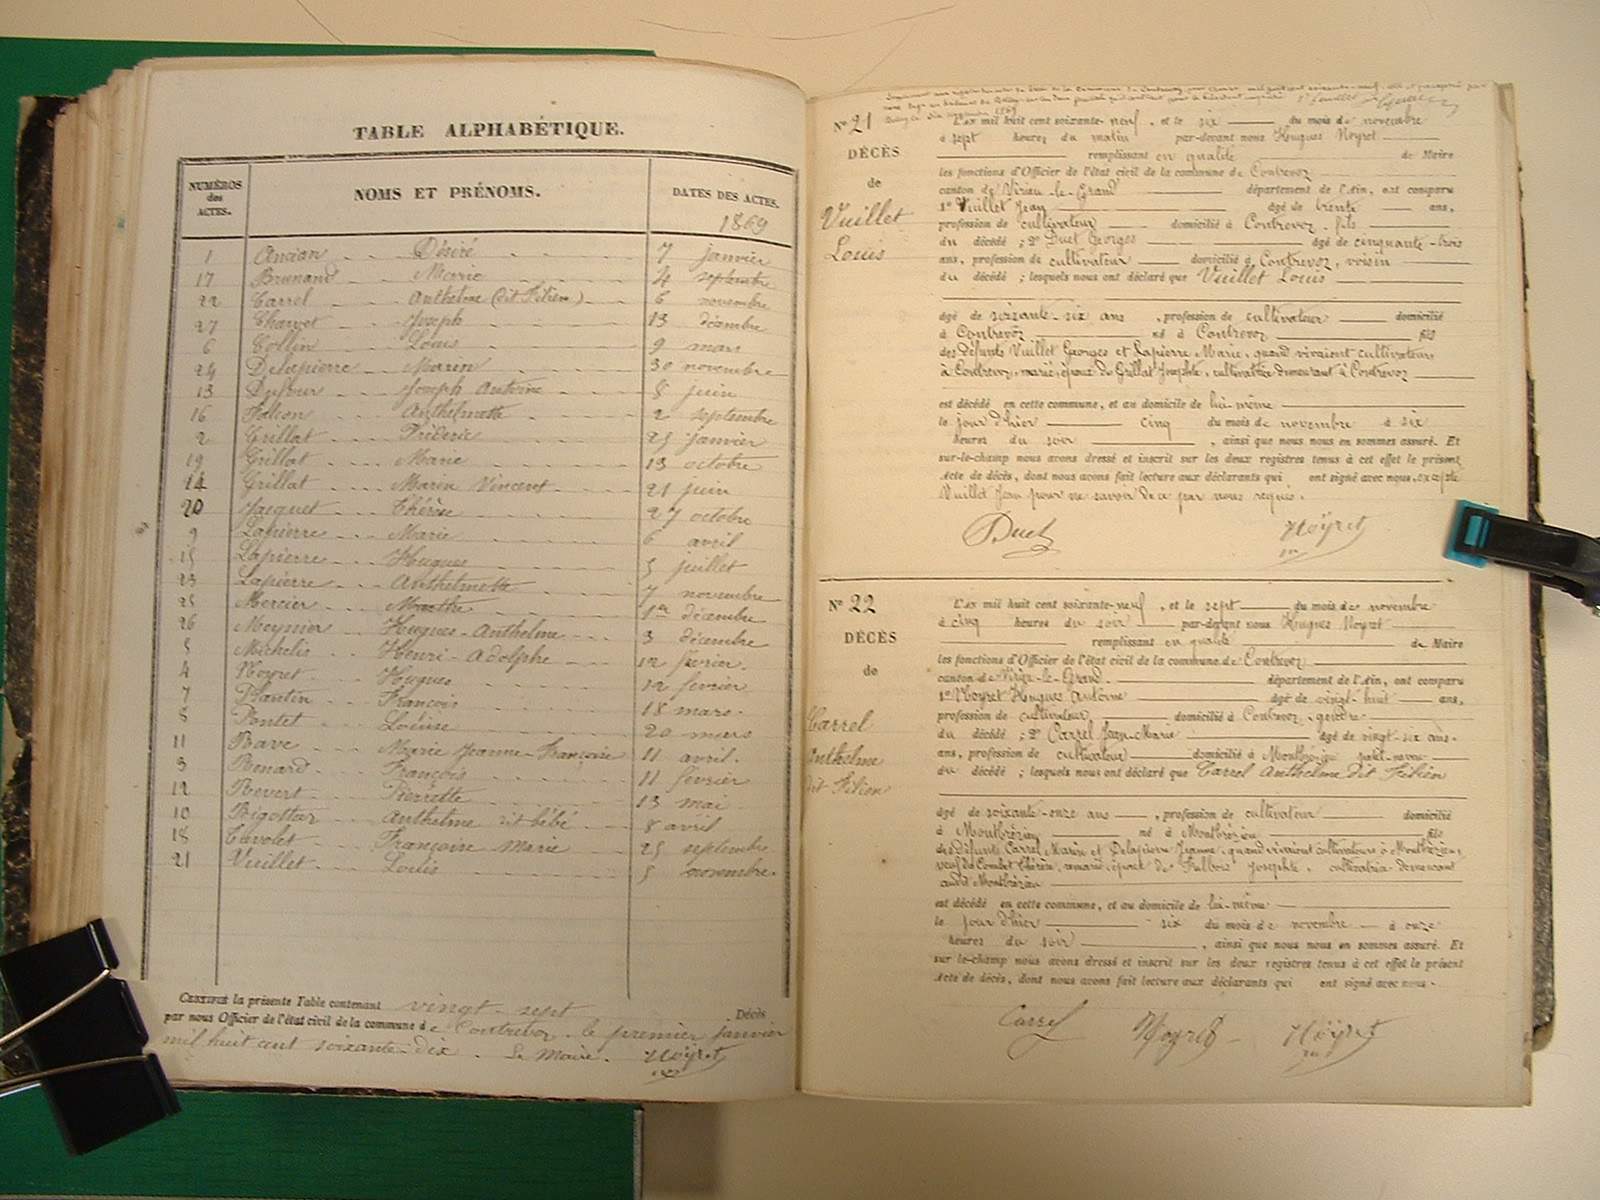 TABLE ALPHABÉTIQUE.
NUMÉROS des ACTES.
NOMS ET PRÉNOMS.
DATES DES ACTES.
1869
1 Ancian Désiré 7 janvier
17 Brunand Marie 4 septembre
22 Carrel Anthelme (dit Filien) 6 novembre
27 Charvet Joseph 13 décembre
6 Collin Louis 9 mars
24 Delapierre Marin 30 novembre
13 Dufour Joseph Antoine 8 juin
16 Folion Anthelmette 2 septembre
2 Grillat Fréderic 25 janvier
19 Grillat Marie 13 octobre
14 Grillat Marin Vincent 21 juin
20 Jacquet Thérèse 27 octobre
9 Lapierre Marie 6 avril
15 Lapierre Hugues 5 juillet
23 Lapierre Anthelmette 7 novembre
25 Mercier Marthe 1er décembre
26 Meynier Hugues-Anthelme 3 décembre
5 Michelis Henri-Adolphe 12 février.
4 Noyret Hugues 12 février
7 Plantin François 18 mars.
8 Pontet Louise 20 mars
11 Rave Marie Jeanne-Françoise 11 avril.
3 Renard François 11 février
12 Revert Pierrette 13 mai
10 Rigottier Anthelme dit bébé 8 avril
18 Cavolet Françoise Marie 25 septembre
21 Vuillet Louis 5 novembre.
CERTIFIÉ la présente Table contenant vingt-sept Décès
par nous Officier de l'état civil de la commune de Contrevoz. le premier janvier
mil huit cent soixante-dix. Le Maire. Noyret
No 21
DÉCÈS
de
Vuillet
Louis
L'an mil huit cent soixante-neuf, et le six du mois de novembre
à sept heures du matin par-devant nous Hugues Noyret
remplissant en qualité de Maire
les fonctions d'Officier de l'état civil de la commune de Contrevoz
canton de Virieu-le-Grand département de l'Ain, ont comparu
1o Vuillet Jean âgé de trente ans,
profession de cultivateur domicilié à Contrevoz, fils
du décédé ; 2o Duet Georges âgé de cinquante-trois
ans, profession de cultivateur domicilié à Contrevoz, voisin
du décédé ; lesquels nous ont déclaré que Vuillet Louis
âgé de soixante-six ans, profession de cultivateur domicilié
à Contrevoz né à Contrevoz fils
des défunts Vuillet Georges et Lapierre Marie, quand vivaient cultivateurs
à Contrevoz, marié, époux de Grillat Josephte, cultivatrice demeurant à Contrevoz
est décédé en cette commune, et au domicile de lui-même
le jour d'hier cinq du mois de novembre à six
heures du soir, ainsi que nous nous en sommes assuré. Et
sur-le-champ nous avons dressé et inscrit sur les deux registres tenus à cet effet le présent
Acte de décès, dont nous avons fait lecture aux déclarants qui ont signé avec nous, excepté
Vuillet Jean pour ne savoir de ce par nous requis.
Duet Noyret
No 22
DÉCÈS
de
Carrel
Anthelme
dit Filien
L'an mil huit cent soixante-neuf, et le sept du mois de novembre
à cinq heures du soir par-devant nous Hugues Noyret
remplissant en qualité de Maire
les fonctions d'Officier de l'état civil de la commune de Contrevoz
canton de Virieu-le-Grand. département de l'Ain, ont comparu
1o Noyret Hugues Antoine âgé de vingt-huit ans,
profession de cultivateur domicilié à Contrevoz, gendre
du décédé ; 2o Carrel Jean-Marie âgé de vingt-six ans.
ans, profession de cultivateur domicilié à Montbrézieu petit-neveu
du décédé ; lesquels nous ont déclaré que Carrel Anthelme dit Filien
âgé de soixante-onze ans, profession de cultivateur domicilié
à Montbrézieu né à Montbrézieu fils
des défunts Carrel Marin et Delapierre Jeanne, quand vivaient cultivateurs à Montbrézieu,
veuf de Combet Thérèse, remarié, époux de Josephte, cultivatrice demeurant
audit Montbrézieu
est décédé en cette commune, et au domicile de lui-même
le jour d'hier six du mois de novembre à onze
heures du soir, ainsi que nous nous en sommes assuré. Et
sur le-champ nous avons dressé et inscrit sur les deux registres tenus à cet effet le présent
Acte de décès, dont nous avons fait lecture aux déclarants qui ont signé avec nous.
Carrel Noyret Noyret